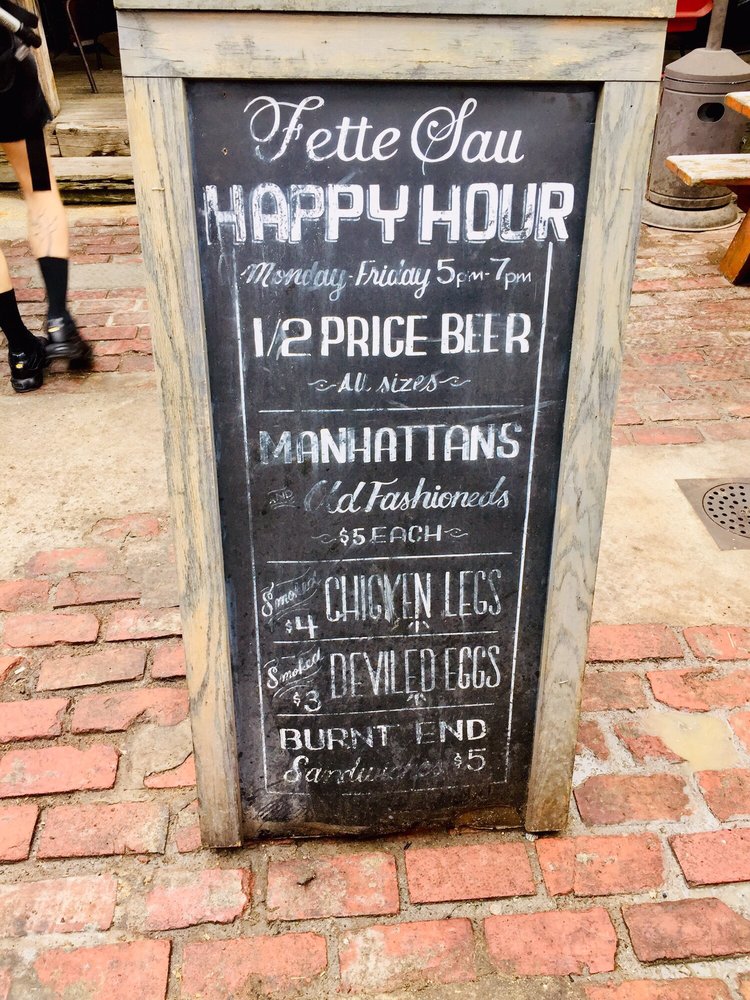 Fette Sau
HAPPY HOUR
Monday-Friday 5pm-7pm
1/2 PRICE BEER
~All sizes~
MANHATTANS
AND Old Fashioneds
~$5 EACH~
Smoked CHICKEN LEGS
$4
Smoked DEVILED EGGS
$3
BURNT END
Sandwiches $5